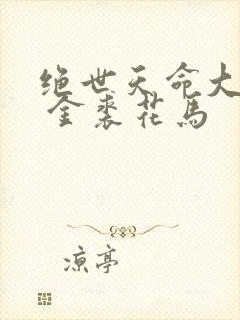 绝世天命大
金裘花马
凉亭